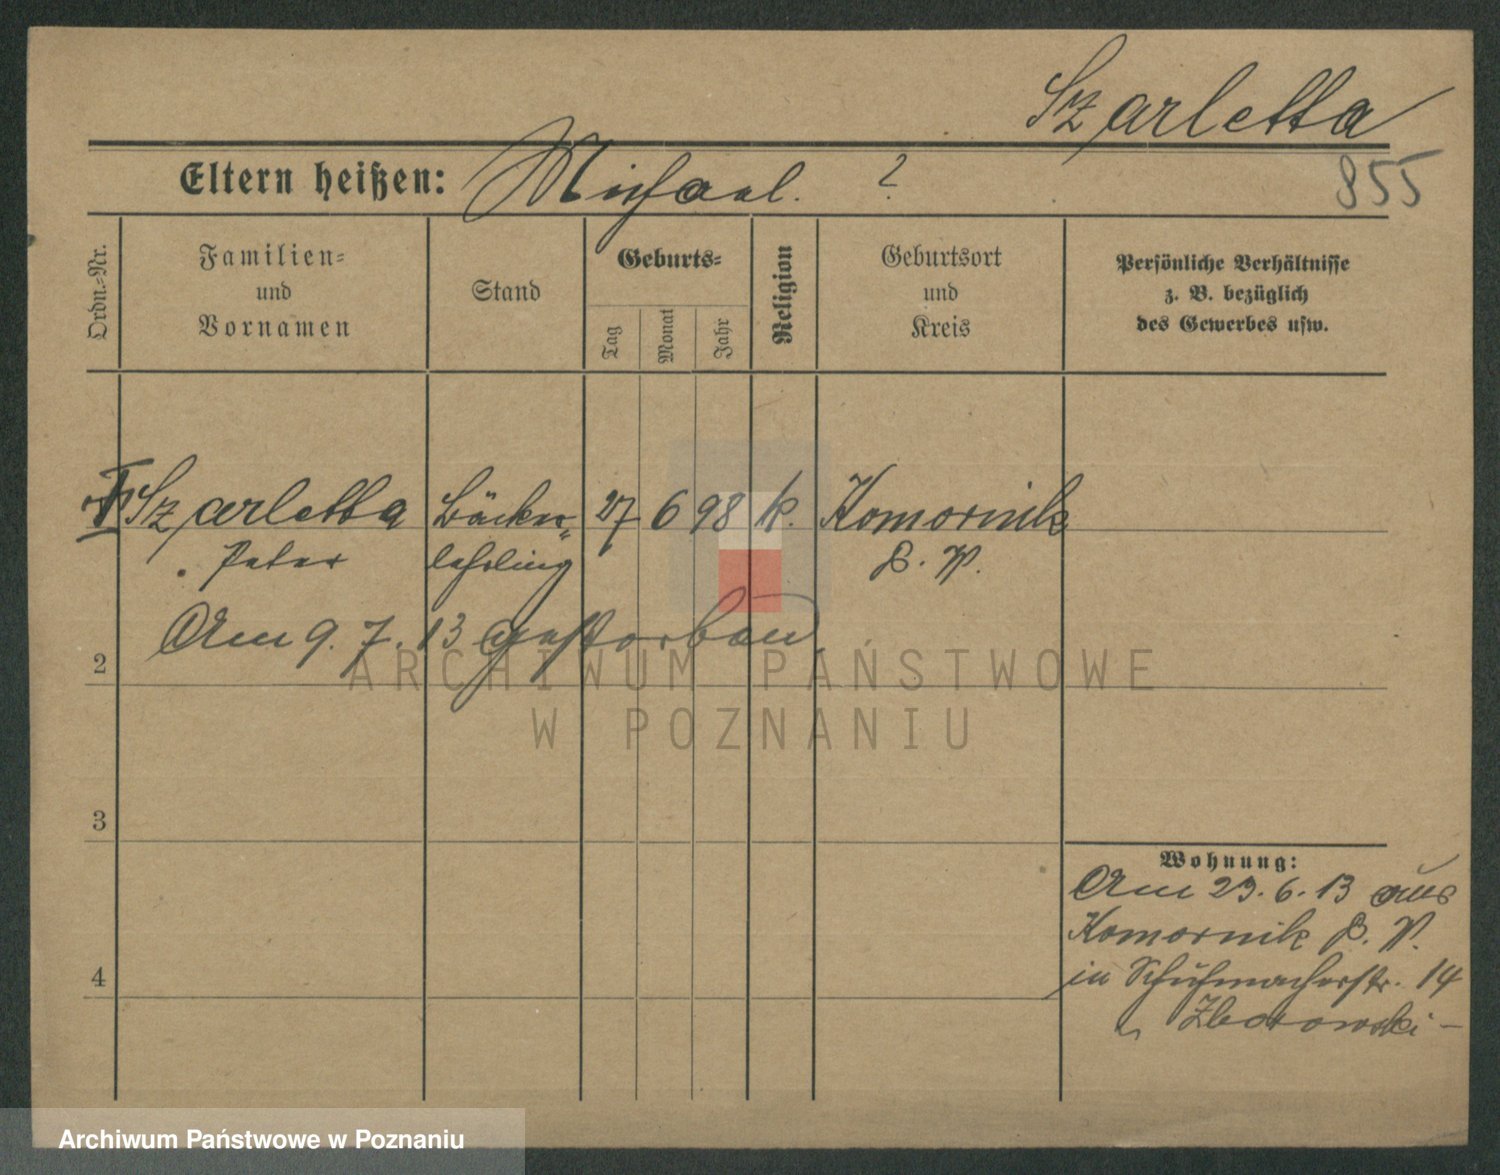 Szarletta
Eltern heißen: Michael. ?
855
Ordn.-Nr.
Familien-
und
Vornamen
Stand
Geburts-
Tag
Monat
Jahr
Religion
Geburtsort
und
Kreis
Persönliche Verhältnisse
z. B. bezüglich
des Gewerbes usw.
Szarletta Bäcker- 27 6 98 k. Komornik
Peter lehrling P. W.
Am 9. 7. 13 gestorben.
2
3
4
Wohnung:
Am 23. 6. 13 aus
Komornik P. W.
in Schuhmacherstr. 14
Zborowski -
ARCHIWUM PAŃSTWOWE
W POZNANIU
Archiwum Państwowe w Poznaniu